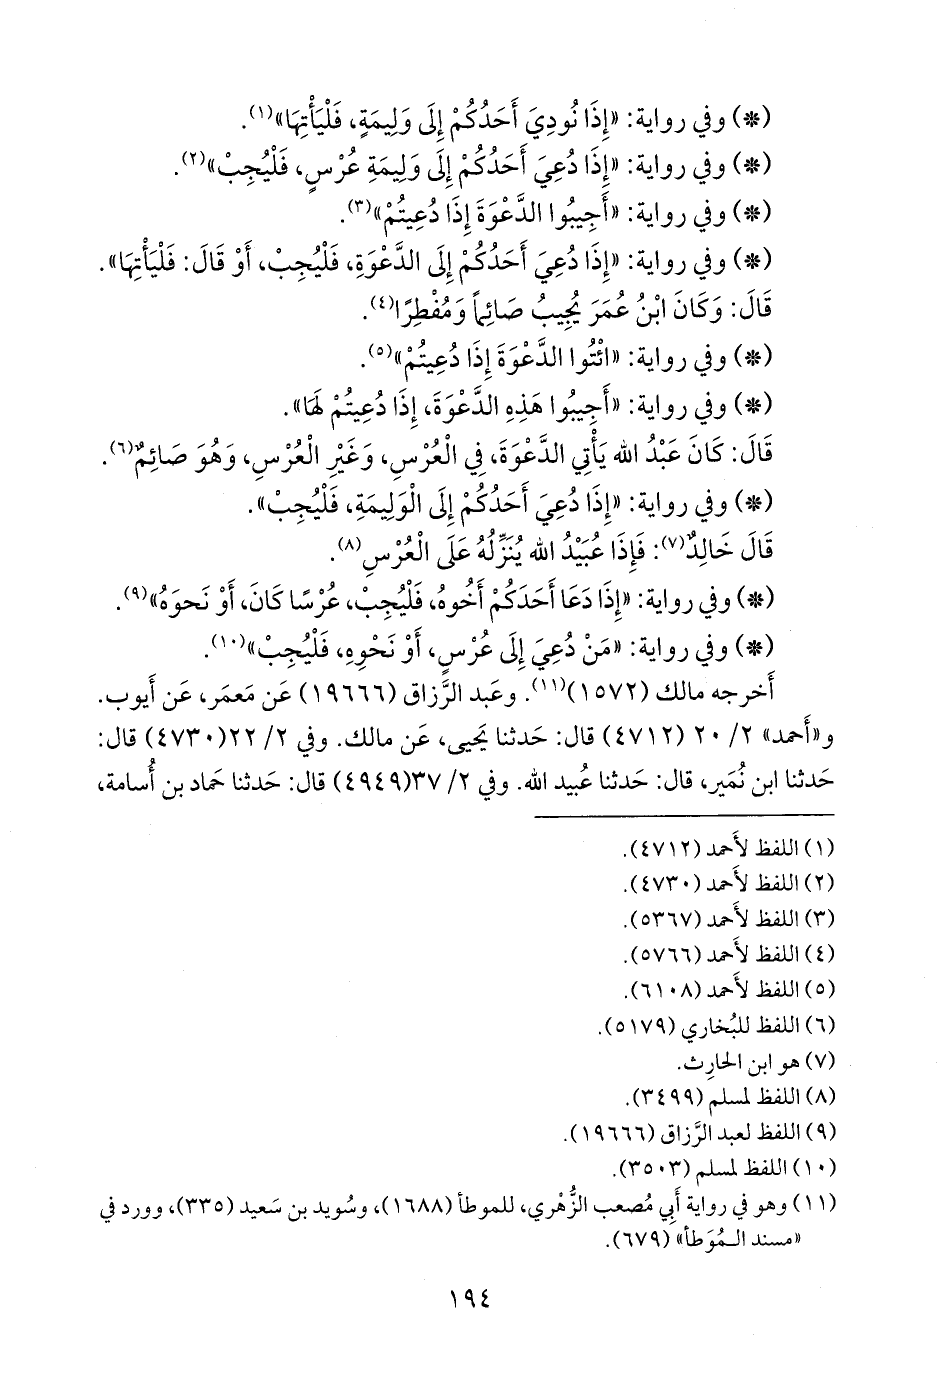 (*) وفي رواية: «إِذَا نُودِيَ أَحَدُكُمْ إِلَى وَلِيمَةٍ، فَلْيَأْتِهَا»(١).
(*) وفي رواية: «إِذَا دُعِيَ أَحَدُكُمْ إِلَى وَلِيمَةِ عُرْسٍ، فَلْيُجِبْ»(٢).
(*) وفي رواية: «أَجِيبُوا الدَّعْوَةَ إِذَا دُعِيتُمْ»(٣).
(*) وفي رواية: «إِذَا دُعِيَ أَحَدُكُمْ إِلَى الدَّعْوَةِ، فَلْيُجِبْ، أَوْ قَالَ: فَلْيَأْتِهَا».
قَالَ: وَكَانَ ابْنُ عُمَرَ يُجِيبُ صَائِماً وَمُفْطِرًا(٤).
(*) وفي رواية: «ائْتُوا الدَّعْوَةَ إِذَا دُعِيتُمْ»(٥).
(*) وفي رواية: «أَجِيبُوا هَذِهِ الدَّعْوَةَ، إِذَا دُعِيتُمْ لَهَا».
قَالَ: كَانَ عَبْدُ الله يَأْتِي الدَّعْوَةَ، فِي الْعُرْسِ، وَغَيْرِ الْعُرْسِ، وَهُوَ صَائِمٌ(٦).
(*) وفي رواية: «إِذَا دُعِيَ أَحَدُكُمْ إِلَى الْوَلِيمَةِ، فَلْيُجِبْ».
قَالَ خَالِدٌ(٧): فَإِذَا عُبَيْدُ الله يُنَزِّلُهُ عَلَى الْعُرْسِ(٨).
(*) وفي رواية: «إِذَا دَعَا أَحَدَكُمْ أَخُوهُ، فَلْيُجِبْ، عُرْسًا كَانَ، أَوْ نَحوَهُ»(٩).
(*) وفي رواية: «مَنْ دُعِيَ إِلَى عُرْسٍ، أَوْ نَحْوِهِ، فَلْيُجِبْ»(١٠).
أَخرجه مالك (١٥٧٢)(١١). وعَبد الرَّزاق (١٩٦٦٦) عَن مَعمَر، عَن أَيوب.
و«أَحمد» ٢/ ٢٠ (٤٧١٢) قال: حَدثنا يَحيى، عَن مالك. وفي ٢/ ٢٢(٤٧٣٠) قال:
حَدثنا ابن نُمَير، قال: حَدثنا عُبيد الله. وفي ٢/ ٣٧(٤٩٤٩) قال: حَدثنا حَماد بن أُسامة،
(١) اللفظ لأَحمد (٤٧١٢).
(٢) اللفظ لأَحمد (٤٧٣٠).
(٣) اللفظ لأَحمد (٥٣٦٧).
(٤) اللفظ لأَحمد (٥٧٦٦).
(٥) اللفظ لأَحمد (٦١٠٨).
(٦) اللفظ للبُخاري (٥١٧٩).
(٧) هو ابن الحارِث.
(٨) اللفظ لمسلم (٣٤٩٩).
(٩) اللفظ لعبد الرَّزاق (١٩٦٦٦).
(١٠) اللفظ لمسلم (٣٥٠٣).
(١١) وهو في رواية أَبي مُصعب الزُّهْري، للموطأ (١٦٨٨)، وسُويد بن سَعيد (٣٣٥)، وورد في
«مسند المُوَطأ» (٦٧٩).
١٩٤